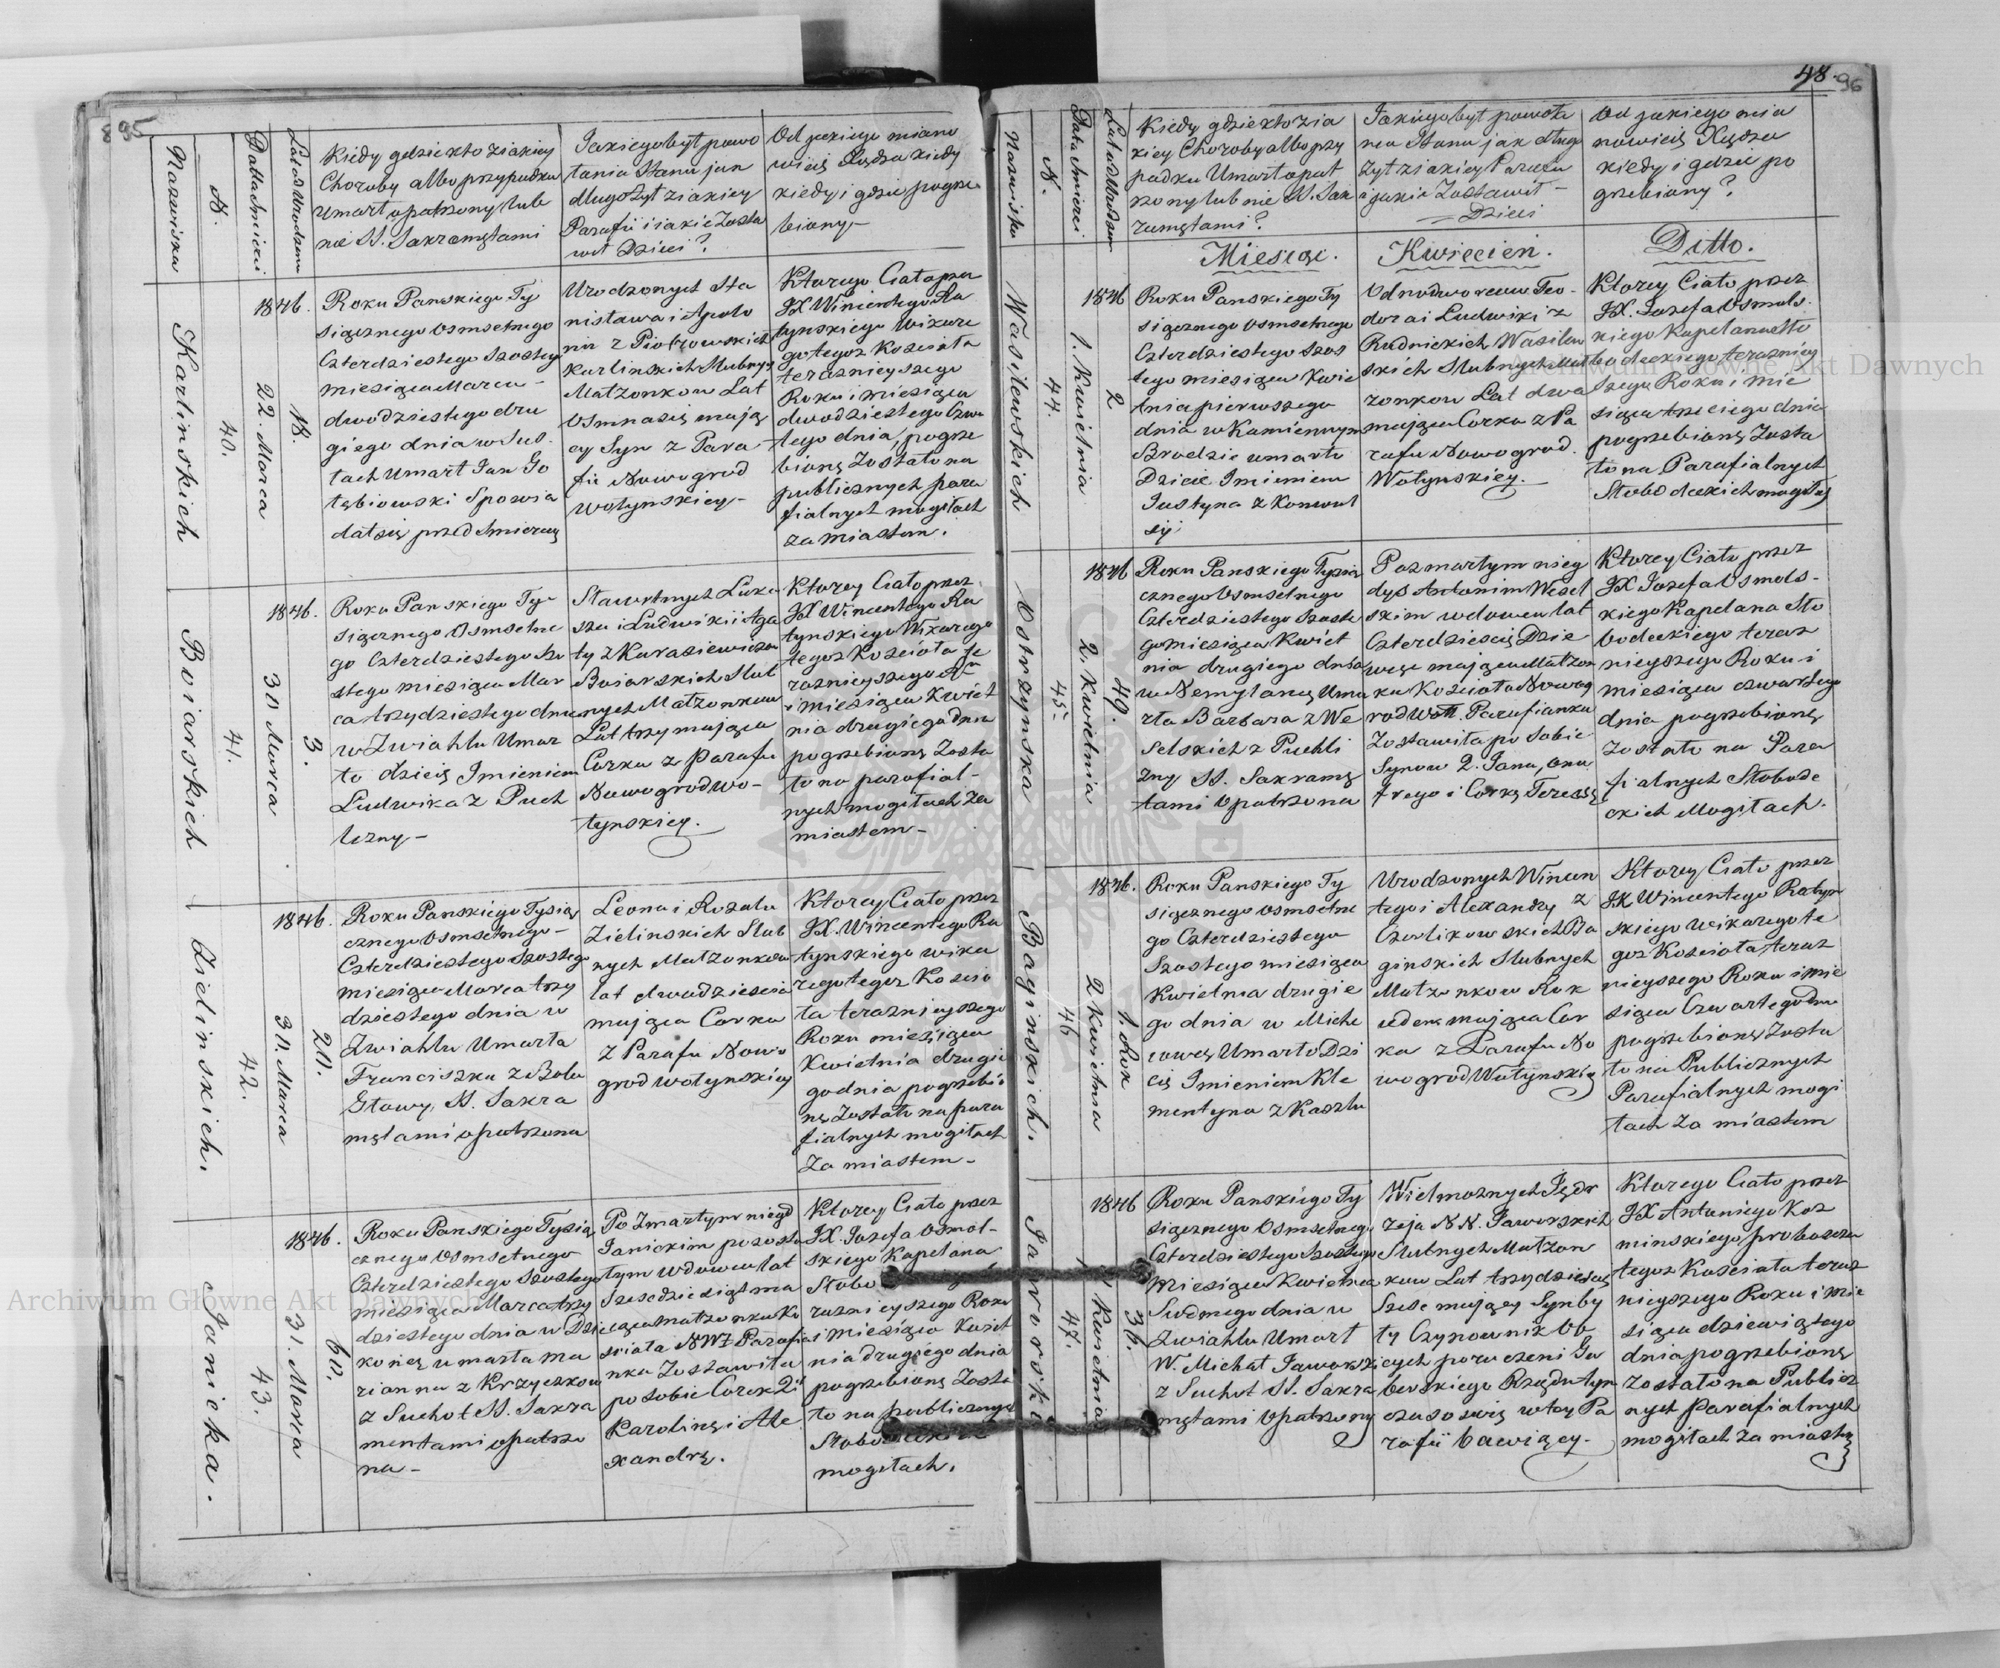 895
Nazwiska
N.
Datta śmierci
Lat od Urodzenia
Kiedy gdzie kto ziakiey
Choroby albo przypadku
umarł opatrzony lub
nie SS. Sakramętami
Jakiego był powo
łania Stanu jan
długo żył z iakiey
Parafii i iakie Zosta
wił Dzieci?
Od jakiego miano
wicię Xiędza kiedy
kiedy i gdzie pogrze
biony
Karlinskich
40.
22. Marca
18.
1846.
Roku Panskiego Ty
siącznego Osmsetnego
Czterdziestego Szostego
miesiąca Marca
dwudziestego dru
giego dnia w Sus
łach Umarł Jan Go
łębiowski Spowia
dał się przed śmiercią
Urodzonych Sta
nisława i Apolo
nii z Piotrowskich
Karlinskich Slubnych
Małżonkow Lat
Osmnaście mają
cy Syn z Para
fii Nowogrod
wołynskiey
Ktorego Ciało przez
JX Wincentego Ra
tynskiego Wikare
go tegoż Kościoła
teraznieyszego
Roku i miesiąca
dwudziestego Czwa
tego dnia, pogrze
bionę Zostało na
publicznych para
fialnych mogiłach
za miastem.
Boiarskich
41.
30 Marca
3.
1846.
Roku Panskiego Ty
siącznego Osmsetne
go Czterdziestego Szo
stego miesiąca Mar
ca trzydziestego dnia
w Zwiahlu Umar
ło dziecię Imieniem
Ludwika z Puch
lizny
Sławetnych Luka
sza i Ludwiki i Aga
ty z Karasiewiczow
Boiarskich Slub
nych Małżonkow
Lat trzy maiąca
Corka z Parafii
Nowogrodwo-
łynskiey.
Ktorey Ciało przez
JX Wincentego Ra
tynskiego Wikarego
tegoż Kościoła te
raznieyszego R.
i miesiąca Kwiet
nia drugiego dnia
pogrzebionę Zosta
ło na parafial-
nych mogiłach za
miastem
Zielinskich.
42.
30. Marca
20.
1846.
Roku Panskiego Tysią
cznego Osmsetnego
Czterdziestego Szostego
miesiąca Marca trzy
dziestego dnia w
Zwiahlu Umarła
Franciszka z Bolu
Głowy, SS. Sakra
mętami opatrzona
Leona i Rozalii
Zielinskich Slub
nych Małżonkow
lat dwadzieścia
mająca Corka
Z Parafii Nowo
grod wołynskiey
Ktorey Ciało przez
JX. Wincentego Ra
tynskiego wika
rego tegoż Kościo
ła teraznieyszego
Roku miesiąca
Kwietnia drugie
go dnia pogrzebio
nę Zostało na para
fialnych mogiłach
Za miastem
Janicka.
43.
31. Marca
60.
1846.
Roku Panskiego Tysią
cznego Osmsetnego
Czterdziestego Szostego
miesiąca Marca trzy
dziestego dnia w Dzi
koncę umarła Ma
rianna z Krzyczkow
z Suchot SS. Sakra
mentami opatrzo
na
Po Zmarłym niegd
Janickim pozosta
łym wdowcu lat
Sześcdziesiąt ma
iąca małżonka Ko
ścioła NWł Parafia
nka Zostawiła
po sobie Corek 2i
Karolinę i Ale
xandrę.
Ktorey Ciało przez
JX. Jozefa Osmol-
skiego Kapelana
Słobo
raznieyszego Roku
i miesiąca Kwiet
nia drugiego dnia
pogrzebionę Zosta
ło na publicznych
mogiłach.
48.
96
Nazwisko
N.
Data śmierci
Kiedy gdzie kto z ia
kiey Choroby albo przy
padku Umarł opat
rzony lub nie SS. Sak
ramętami?
Jakiego był powoła
nia Stanu jak długo
żył z iakiey Parafii
i jakie Zostawił
Dzieci
Od jakiego mia
nowicię Xiędza
kiedy i gdzie po
grzebiony?
Miesiąc. Kwiecien. Ditto.
Wasilewskich
44.
1. Kwietnia
2
1846
Roku Panskiego Ty
siącznego Osmsetnego
Czterdziestego Szos
tego miesiąca Kwie
tnia pierwszego
dnia w Kamiennym
Brodzie umarło
Dziecię Imieniem
Justyna z Konwul
syi
Odnodworcow Teo-
dora i Ludwiki z
Rudnickich Wasilew
skich Slubnych Mał
żonkow Lat dwa
mająca Corka z Pa
rafii Nowogrod.
Wołynskiey.
Ktorey Ciało przez
JX. Jozefa Osmols-
kiego Kapelana Sło
bodeckiego terazniey
szego Roku i mie
siąca trzeciego dnia
pogrzebionę Zosta
ło na Parafialnych
Słobodeckich mogiłach
Ostrzynska
45.
2. Kwietnia
49.
1846
Roku Panskiego Tysią
cznego Osmsetnego
Czterdziestego Szoste
go miesiąca Kwiet
nia drugiego dnia
w Nemylancę Uma
rła Barbara z We
selskich z Puchli
zny SS. Sakramę
tami Opatrzona
Po zmarłym nieg
dyś Antonim Wesel
skim wdowcu lat
Czterdzieście Dzie
więc mająca Małżon
ka Kościoła Nowog
rod Woł. Parafianka
Zostawiła po Sobie
Synow 2. Jana, Onu
frego i Corkę Teressę
Ktorey Ciało przez
JX Jozefa Osmols-
kiego Kapelana Sło
bodeckiego teraz
nieyszego Roku i
miesiąca czwartego
dnia pogrzebionę
zostało na Para
fialnych Słobode
ckich Mogiłach.
Baginskich.
46
2 Kwietnia
1. Rok
1846.
Roku Panskiego Ty
siącznego Osmsetne
go Czterdziestego
Szostego miesiąca
Kwietnia drugie
go dnia w Miche
iowcę Umarło Dzi
cię Imieniem Kle
mentyna z Kaszlu
Urodzonych Wincen
tego i Alexandry z
Czerlikowskich Ba
ginskich Slubnych
Małżonkow Rok
ieden mająca Cor
ka z Parafii No
wogrod Wołynskiey
Ktorey Ciało przez
JX Wincentego Ratyn
skiego wikarego te
goż Kościoła teraz
nieyszego Roku i mie
siąca Czwartego dnia
pogrzebionę Zosta
ło na Publicznych
Parafialnych mogi
łach Za miastem
Jaworski
47.
7 Kwietnia
36.
1846
Roku Panskiego Ty
siącznego Osmsetnego
Czterdziestego Szostego
Miesiąca Kwietnia
Siodmego dnia w
Zwiahlu Umarł
W. Michał Jaworski
z Suchot SS. Sakra
mętami Opatrzony
Wielmożnych Jędr
zeja NN. Jaworskich
Slubnych Małżon
kow Lat trzydzieście
Szesc mający Syn by
ły Czynownik Oso
bych poruczeni Gu
berskiego Rządu tym
czasowię w tey Pa
rafii bawiący
Ktorego Ciało przez
JX Antoniego Koz
minskiego proboszcza
tegoż Kościoła teraz
nieyszego Roku i mie
siąca dziewiątego
dnia pogrzebionę
Zostało na Publicz
nych Parafialnych
mogiłach za miastę
Archiwum Główne Akt Dawnych
Archiwum Główne Akt Dawnych